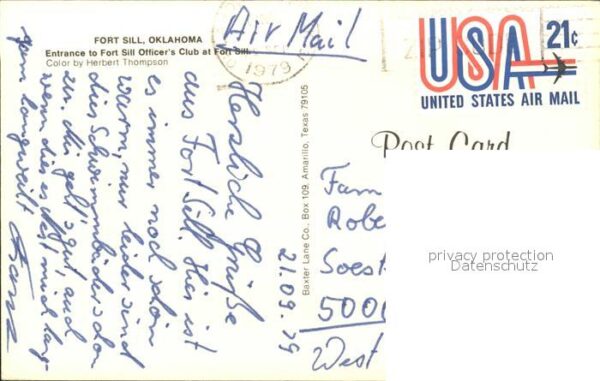 FORT SILL, OKLAHOMA
Entrance to Fort Sill Officer's Club at Fort Sill.
Color by Herbert Thompson
Air Mail
1979
USA 21c
UNITED STATES AIR MAIL
Post Card
Baxter Lane Co.: Box 109, Amarillo, Texas 79105
21.09.79
Herzliche Grüße
aus Fort Sill. Hier ist
es immer noch schön
warm, nur leider sind
die Schwimmbäder schon
zu. Mir geht's gut, auch
wenn dies Nest mich lang-
sam langweilt
Fam
Robe
Soest
500
West
privacy protection
Datenschutz